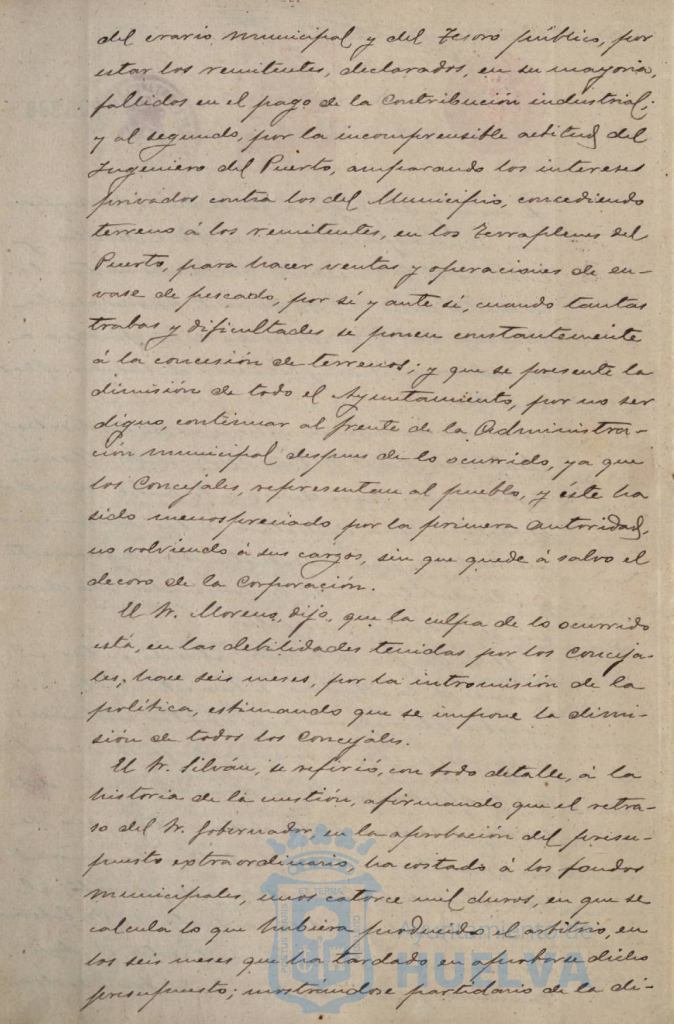 del erario municipal y del Tesoro público, por
estar los remitentes, declarados, en su mayoria,
fallidos en el pago de la contribución industrial;
y al segundo, por la incomprensible actitud del
Ingeniero del Puerto, amparando los intereses
privados contra los del Municipio, concediendo
terreno á los remitentes, en los Terraplenes del
Puerto, para hacer ventas y operaciones de en-
vase de pescado, por sí y ante sí, cuando tantas
trabas y dificultades se ponen constantemente
á la concesión de terrenos; y que se presente la
dimisión de todo el Ayuntamiento, por no ser
digno, continuar al frente de la Administra-
ción municipal despues de lo ocurrido, ya que
los Concejales, representan al pueblo, y éste ha
sido menospreciado por la primera autoridad,
no volviendo á sus cargos, sin que quede á salvo el
decoro de la Corporación.
El Sr. Moreno, dijo, que la culpa de lo ocurrido
está, en las debilidades tenidas por los Conceja-
les, hace seis meses, por la intromisión de la
política, estimando que se impone la dimi-
sión de todos los Concejales.
El Sr. Silván, se refirió, con todo detalle, á la
historia de la cuestión, afirmando que el retra-
so del Sr. Gobernador, en la aprobación del presu-
puesto extraordinario, ha costado á los fondos
municipales, unos catorce mil duros, en que se
calcula lo que hubiera producido el arbitrio, en
los seis meses que ha tardado en aprobarse dicho
presupuesto; mostrándose partidario de la di-
Ayuntamiento de
HUELVA